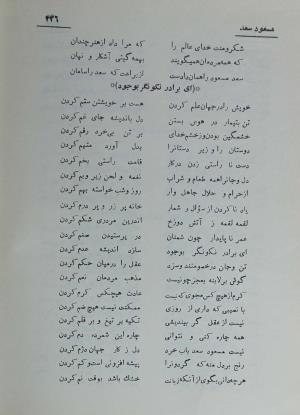 مسعود سعد
۴۴۶
شکرو منت خدای عالم را که مرا داد از هنر چندان
که همه مردمان همیگویند بهمه گیتی آشکار و نهان
سعد مسعود را همان دادست از براعت که سعد را سامان
(ای برادر نکونگر بوجود)
خویش را در جهان علم کردن هست بر خویشتن ستم کردن
تن بتیمار در هوس بستن دل باندیشه جای غم کردن
خشمگین بودن و ز خشم خدای بر تن بی خرد رقم کردن
دوستان را و زیر دستان را بدل آورد متهم کردن
دست نا راستی زدن در کار قامت راستی بخم کردن
دل و جان را همه طعام و شراب نغمه و لحن زیر و بم کردن
از حرام و حلال جاهل وار روز و شب خواسته بهم کردن
یاد نا کردن از سؤال و شمار خانه پر زر و پر درم کردن
لقمه لقمه ز آتش دوزخ اندرین مردری شکم کردن
عمر نا پایدار چون شمنان در پرستیدن صنم کردن
ای برادر نکونگر بوجود سازد اندیشه عدم کردن
تن و جان در خصومتند و سزد عقل را در میان حکم کردن
گوش بر لابنه بعجز چو نیست مذهب مردمان نعم کردن
کرم از هیچ کس مجوی که نیست عادت هیچکس کرم کردن
با نصیبی که داری از روزی ممکنت نیست هیچ ضم کردن
نیست از عقل گر بیندیشی تکیه بر تیغ و بر قلم کردن
همه چاره کنی و نتوانی چاره این شمرده دم کردن
نیست مسعود سعد باب خرد دل ز کار جهان دژم کردن
رنج بر دل منه که گردون را پیشه افزونی است و کم کردن
هر چه دانی بگوی از آنکه زبانت خشک باشد بوقت نم کردن